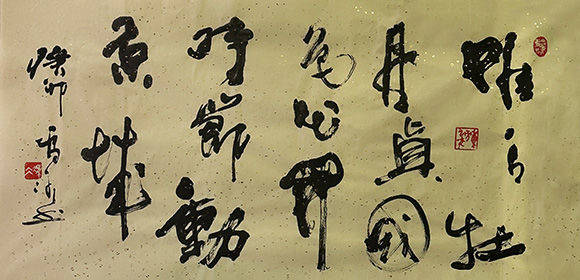 唯有牡
丹真國
色花開
時節動
京城
癸卯